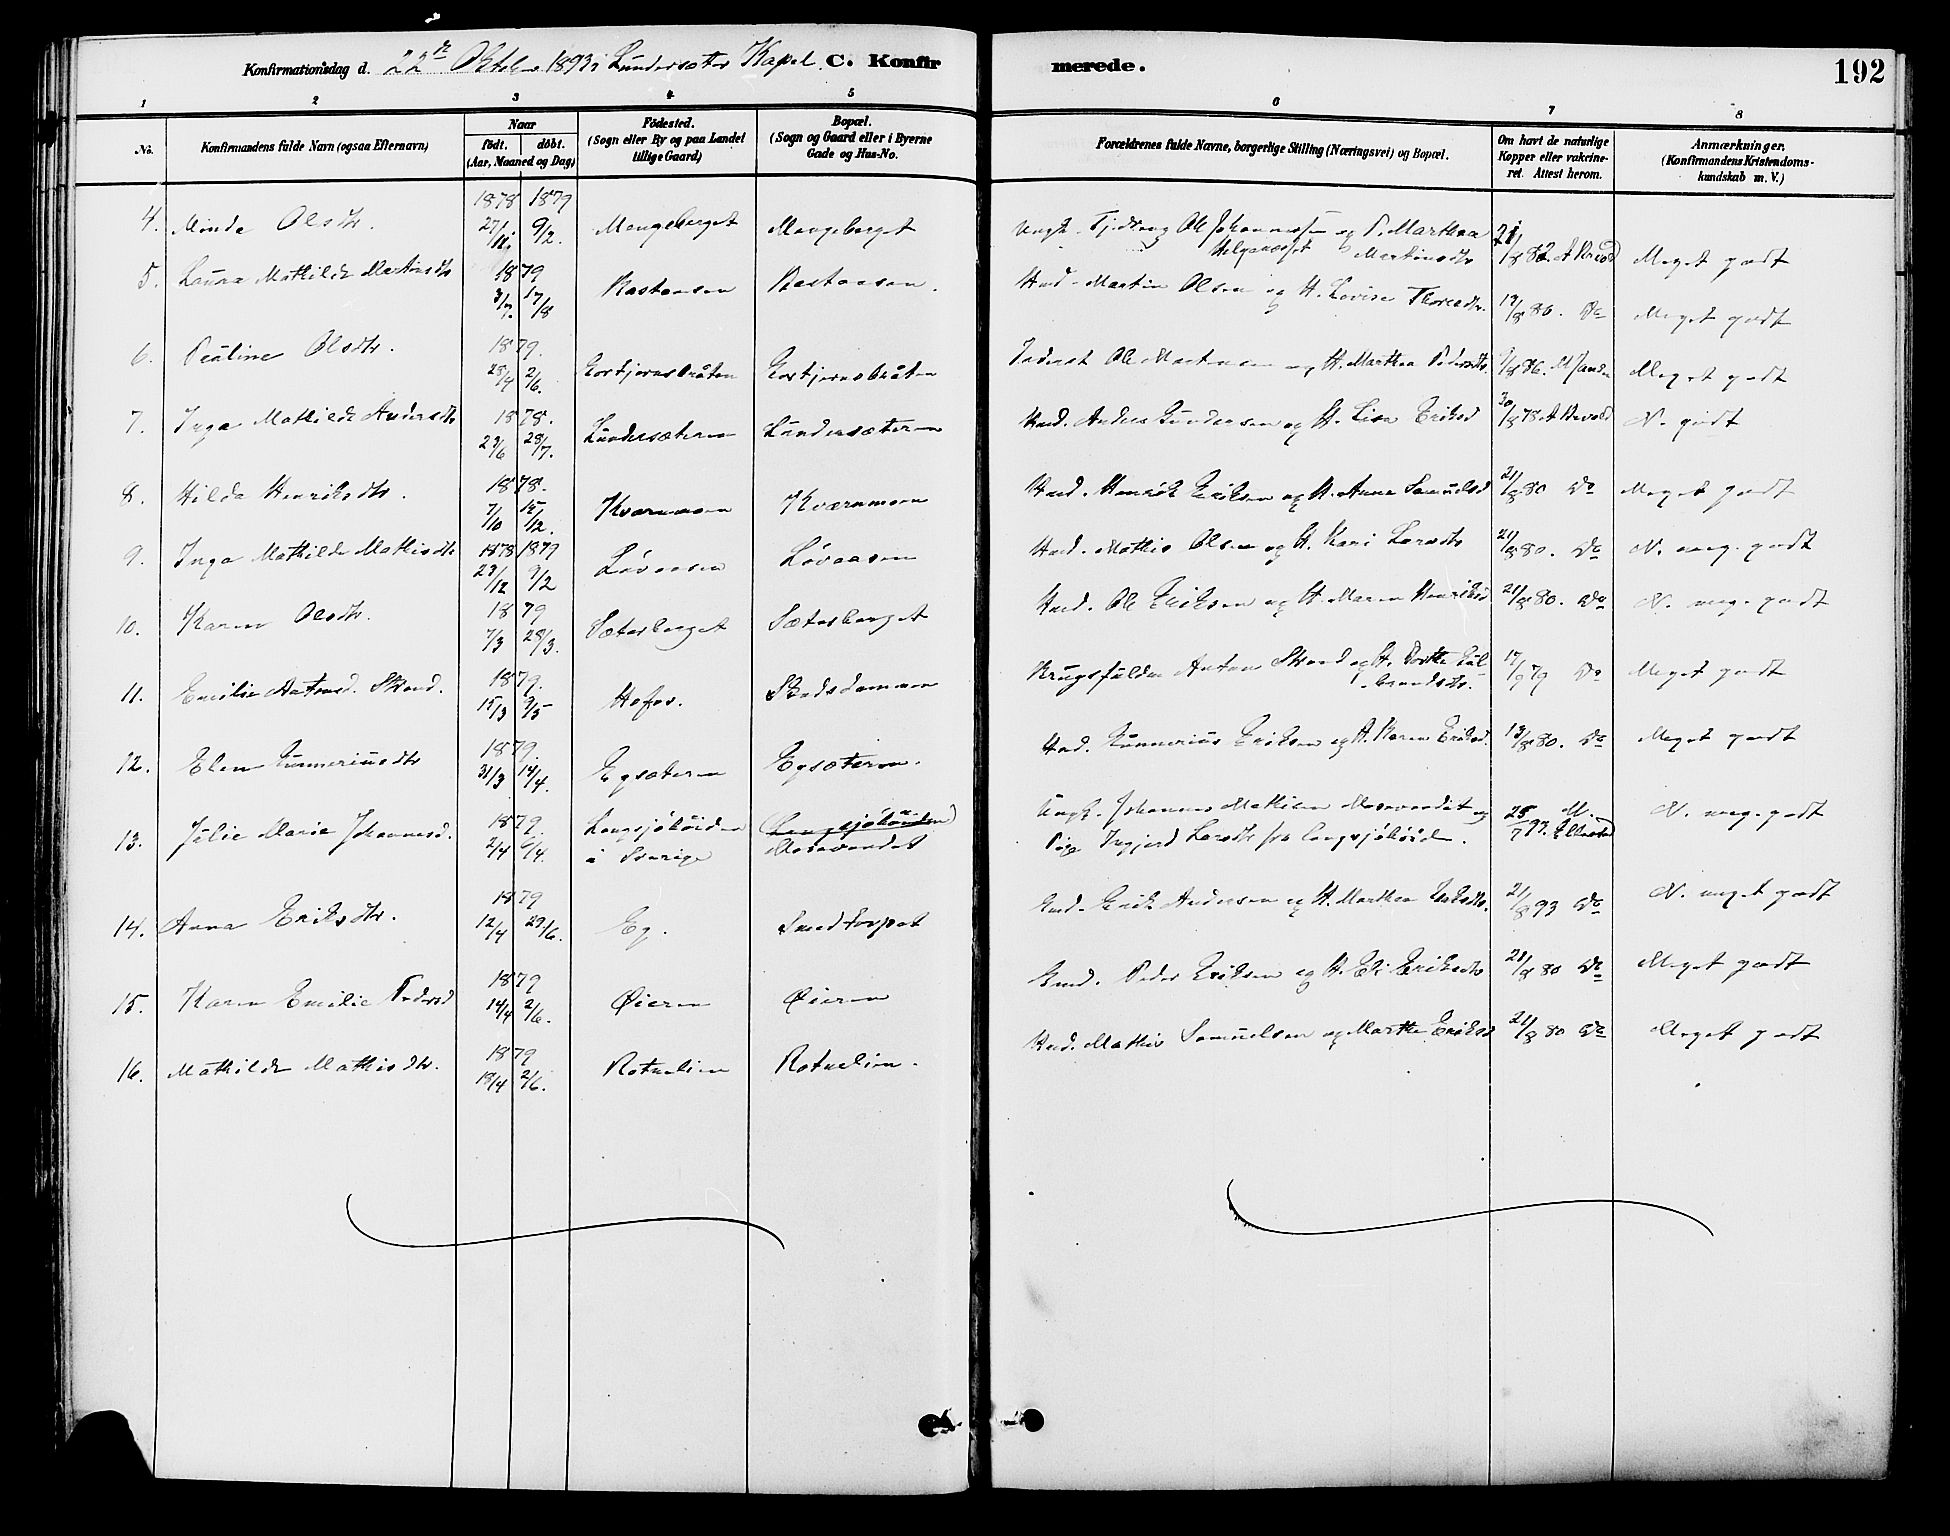 Konfirmationsdag d. 22de Oktober 1893 i Lundersæter Kapel C. Konfirmerede. 192
1 2 3 4 5 6 7 8
No.
Konfirmandens fulde Navn (ogsaa Efternavn)
Naar
født. døbt.
(Aar, Maaned og Dag)
Fødested.
(Sogn eller By og paa Landet
tillige Gaard)
Bopæl.
(Sogn og Gaard eller i Byerne
Gade og Hus-No.
Forældrenes fulde Navne, borgerlige Stilling (Næringsvei) og Bopæl.
Om havt de naturlige
Kopper eller vakcine-
ret. Attest herom.
Anmærkninger.
(Konfirmandens Kristendoms-
kundskab m. V.)
1878 1879
4. Minda Olsdtr. 27/11. 9/2. Mangeberget Mangeberget Ungk. Ole Johannessen og P. Marthea
Helgenesset Martinsdtr 21/8 82. Meget godt
1879
5. Laura Mathilde Martinsdtr 3/7. 17/8 Rastaasen Rastaasen. Hmd. Martin Olsen og H. Lovise 19/8 80. Do Meget godt
1879.
6. Pauline Olsdtr. 28/4 2/6. Gortjernsbråten Gortjernsbråten Inderst Ole og H. Marthea Pedersdtr. 9/8 86. Meget godt
1878.
7. Inga Mathilde Andersdtr 23/6 28/7. Lundersæteren Lundersæteren Hmd. Anders Gundersen og H. Lisa Eriksd 30/8 78 N. godt
1878.
8. Hilda Henriksdtr. 7/10 15/12. Kværnmoen Kværnmoen Hmd. Henrik Eriksen og H. Anna Samuelsd 21/8 80 Do Meget godt
1878 1879
9. Inga Mathilde Mathisdtr 23/12 9/2 Løvaasen Løvaasen Hmd. Mathis Olsen og H. Kari Larsdtr 21/8 80. Do N. meg. godt
1879
10. Karen Olsdtr. 7/3 28/3. Sætesberget Sætesberget Hmd. Ole Eriksen og H. Maren Henriksd 21/8 80. Do N. meg. godt
1879.
11. Emilie Antonsd. Strand. 15/3 9/5 Hofos. Stadsdammen Krugsfulder Anton Strand og H. Dorthe Gul-
brandsdtr. 17/9 79 Do Meget godt
1879.
12. Elen Gunneriusdtr 31/3 14/4. Egsæteren Egsæteren. Hmd. Gunnerius Eriksen og H. Karen Eriksd. 13/8 80. Do Meget godt
1879.
13. Julie Marie Johannesd. 2/4 6/4. Langsjöhöiden
i Sverige (Langsjöhöiden)
Masevandet Ungk. Johannes Mathisen Masevandet og
Pige Ingjerd Larsdtr fra Langsjöhöid. 25/7 93. N. meg. godt
1879
14. Anna Eriksdtr. 12/4 29/6. Eg. Sandtorpet Hmd. Erik Andersen og H. Marthea 21/8 93 Do N. meget godt
1879
15. Karen Emilie Pedersd 14/4 2/6. Øieren Øieren Hmd. Peder Eriksen og H. Eli Eriksdtr 21/8 80 Do Meget godt
1879
16. Mathilde Mathisdtr. 18/4 2/6. Rotnelien Rotnelien. Hmd. Mathis Samuelsen og Marthe Eriksd 21/8 80 Do Meget godt